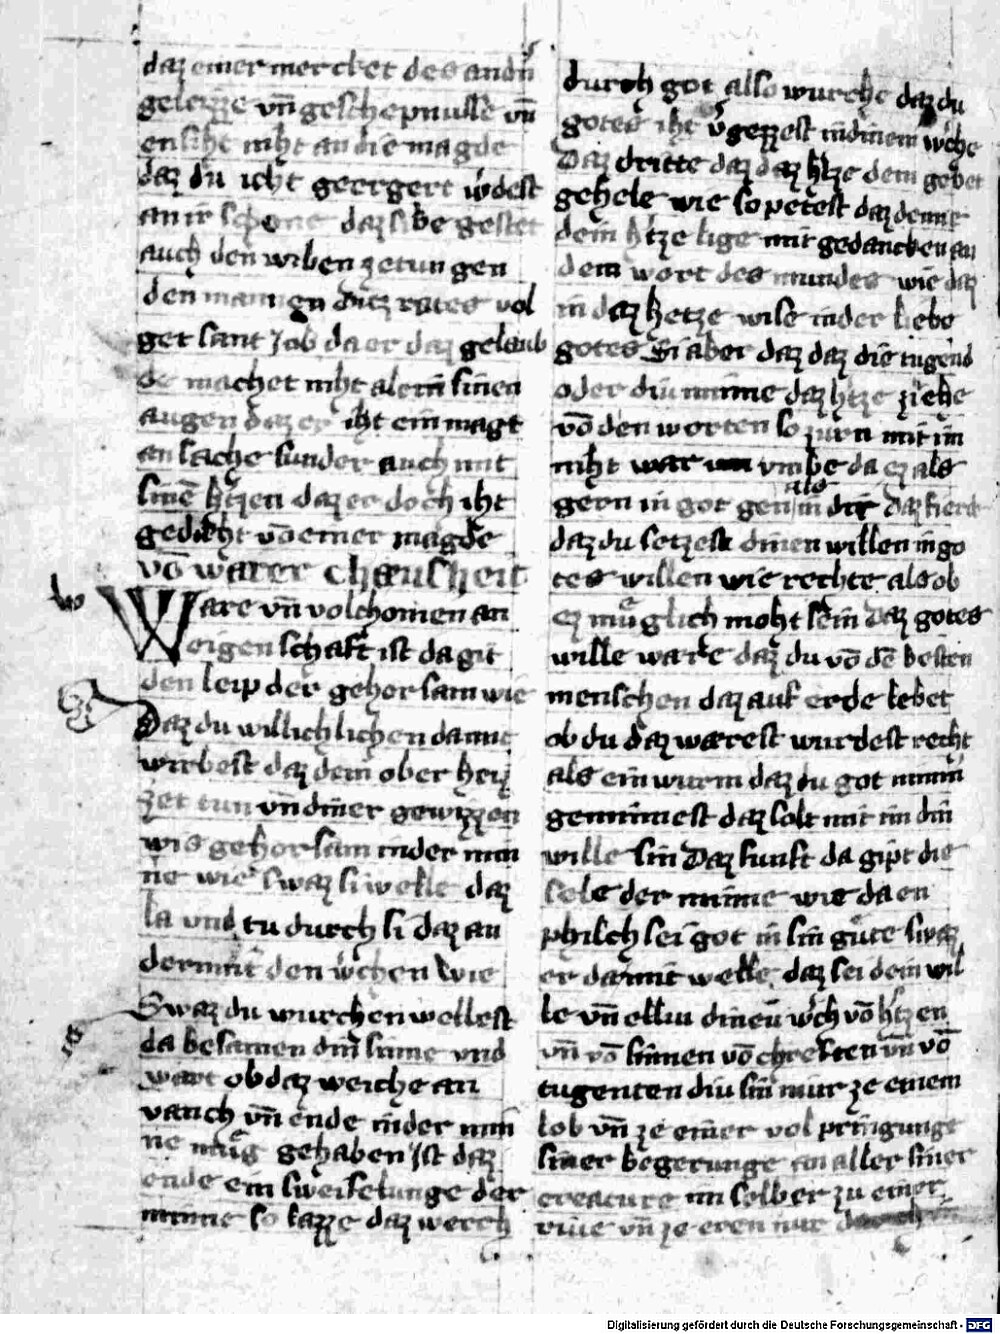 daz einer mercket des andn̄
gelezze vn̄ geschepnusse vn̄
ensihe niht an die magde
daz du icht geergert wͤdest
an ir schone daz si be gestet
auch den wiben ze tun gen
den mannen ditz rates vol
get sant Job da er daz gelaub
de machet niht alein sinen
augen daz er iht ein magt
an sache sunder auch mit
sinē htzen daz er doch iht
gedeht vō einer magde
vō warer chauscheit
Ware vn̄ volchomen an
eigenschaft ist da git
den leip der gehorsam wie
Daz du willichlichen damit
wirbest daz dein ober heiz
zet tun vn̄ diner gewizzen
wis gehorsam in der min
ne wie swaz si welle daz
la vnd tu durch si daz an
der mit den wͤchen wie
Swaz du wurchen wellest
da besamen din sinne vnd
wart ob daz weiche an
vanch vn̄ ende in der min
ne mug gehaben Jst daz
ende ein sweifelunge der
minne so lazze daz werch
durch got also wurche daz du
gotes iht vͤgezzest in dinem wͤche
Daz dritte daz daz htze dem gebet
gehele wie so petest daz denne
dein htze lige mit gedancken an
dem wort des mundes wie daz
in daz hetze wise in der liebe
gotes Si aber daz daz die tugend
oder diu minne daz htze ziehe
vō den worten so zurn mit im
niht war vmbe da ez als
gern in got gen als in dir Daz fierd
daz du setzest dinen willen in go
tes willen wie rechte als ob
ez muglich moht sein Daz gotes
wille ware daz du vō dē besten
menschen daz auf erde lebet
ob du daz wærest wurdest recht
als ein wurm daz du got minn
gennimest daz solt mit im din
wille sin Daz funft da gipt die
sele der minne wie da en
philch sei got in sin gute swaz
er da mit welle daz sei dein wil
le vn̄ elliu dineu wͤch vō htzen
vn̄ vō sinnen vō chreften vn̄ vō
tugenten diu sin nur ze einem
lob vn̄ ze einer vol pringunge
siner begerunge an aller siner
creature im selber zu einer
vn̄ ze eren nur
Digitalisierung gefördert durch die Deutsche Forschungsgemeinschaft - DFG